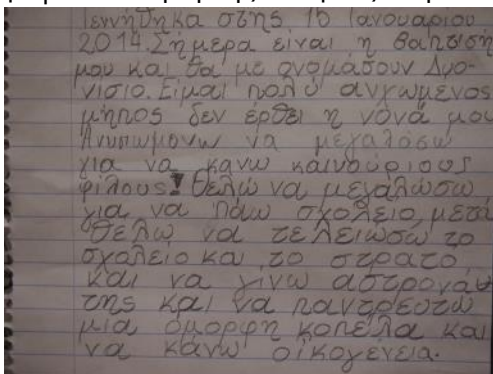 Γεννήθηκα στης 15 Ιανουαρίου
2014. Σήμερα είναι η βάπτιση
μου και θα με ονομάσουν Διο-
νισιο. Είμαι πολύ ανχωμένος
μήπος δεν έρθει η νόνά μου
Ανυπωμονω να μεγαλόσω
για να κανω καινούριους
φίλους! Θελω να μεγαλωσω
για να πάω σχολείο, μετα
θελω να τελειωσω το
σχολείο και το στρατο
και να γίνω αστροναύ
της και να παντρευτω
μια όμορφη κοπέλα και
να κάνω οικογένεια.